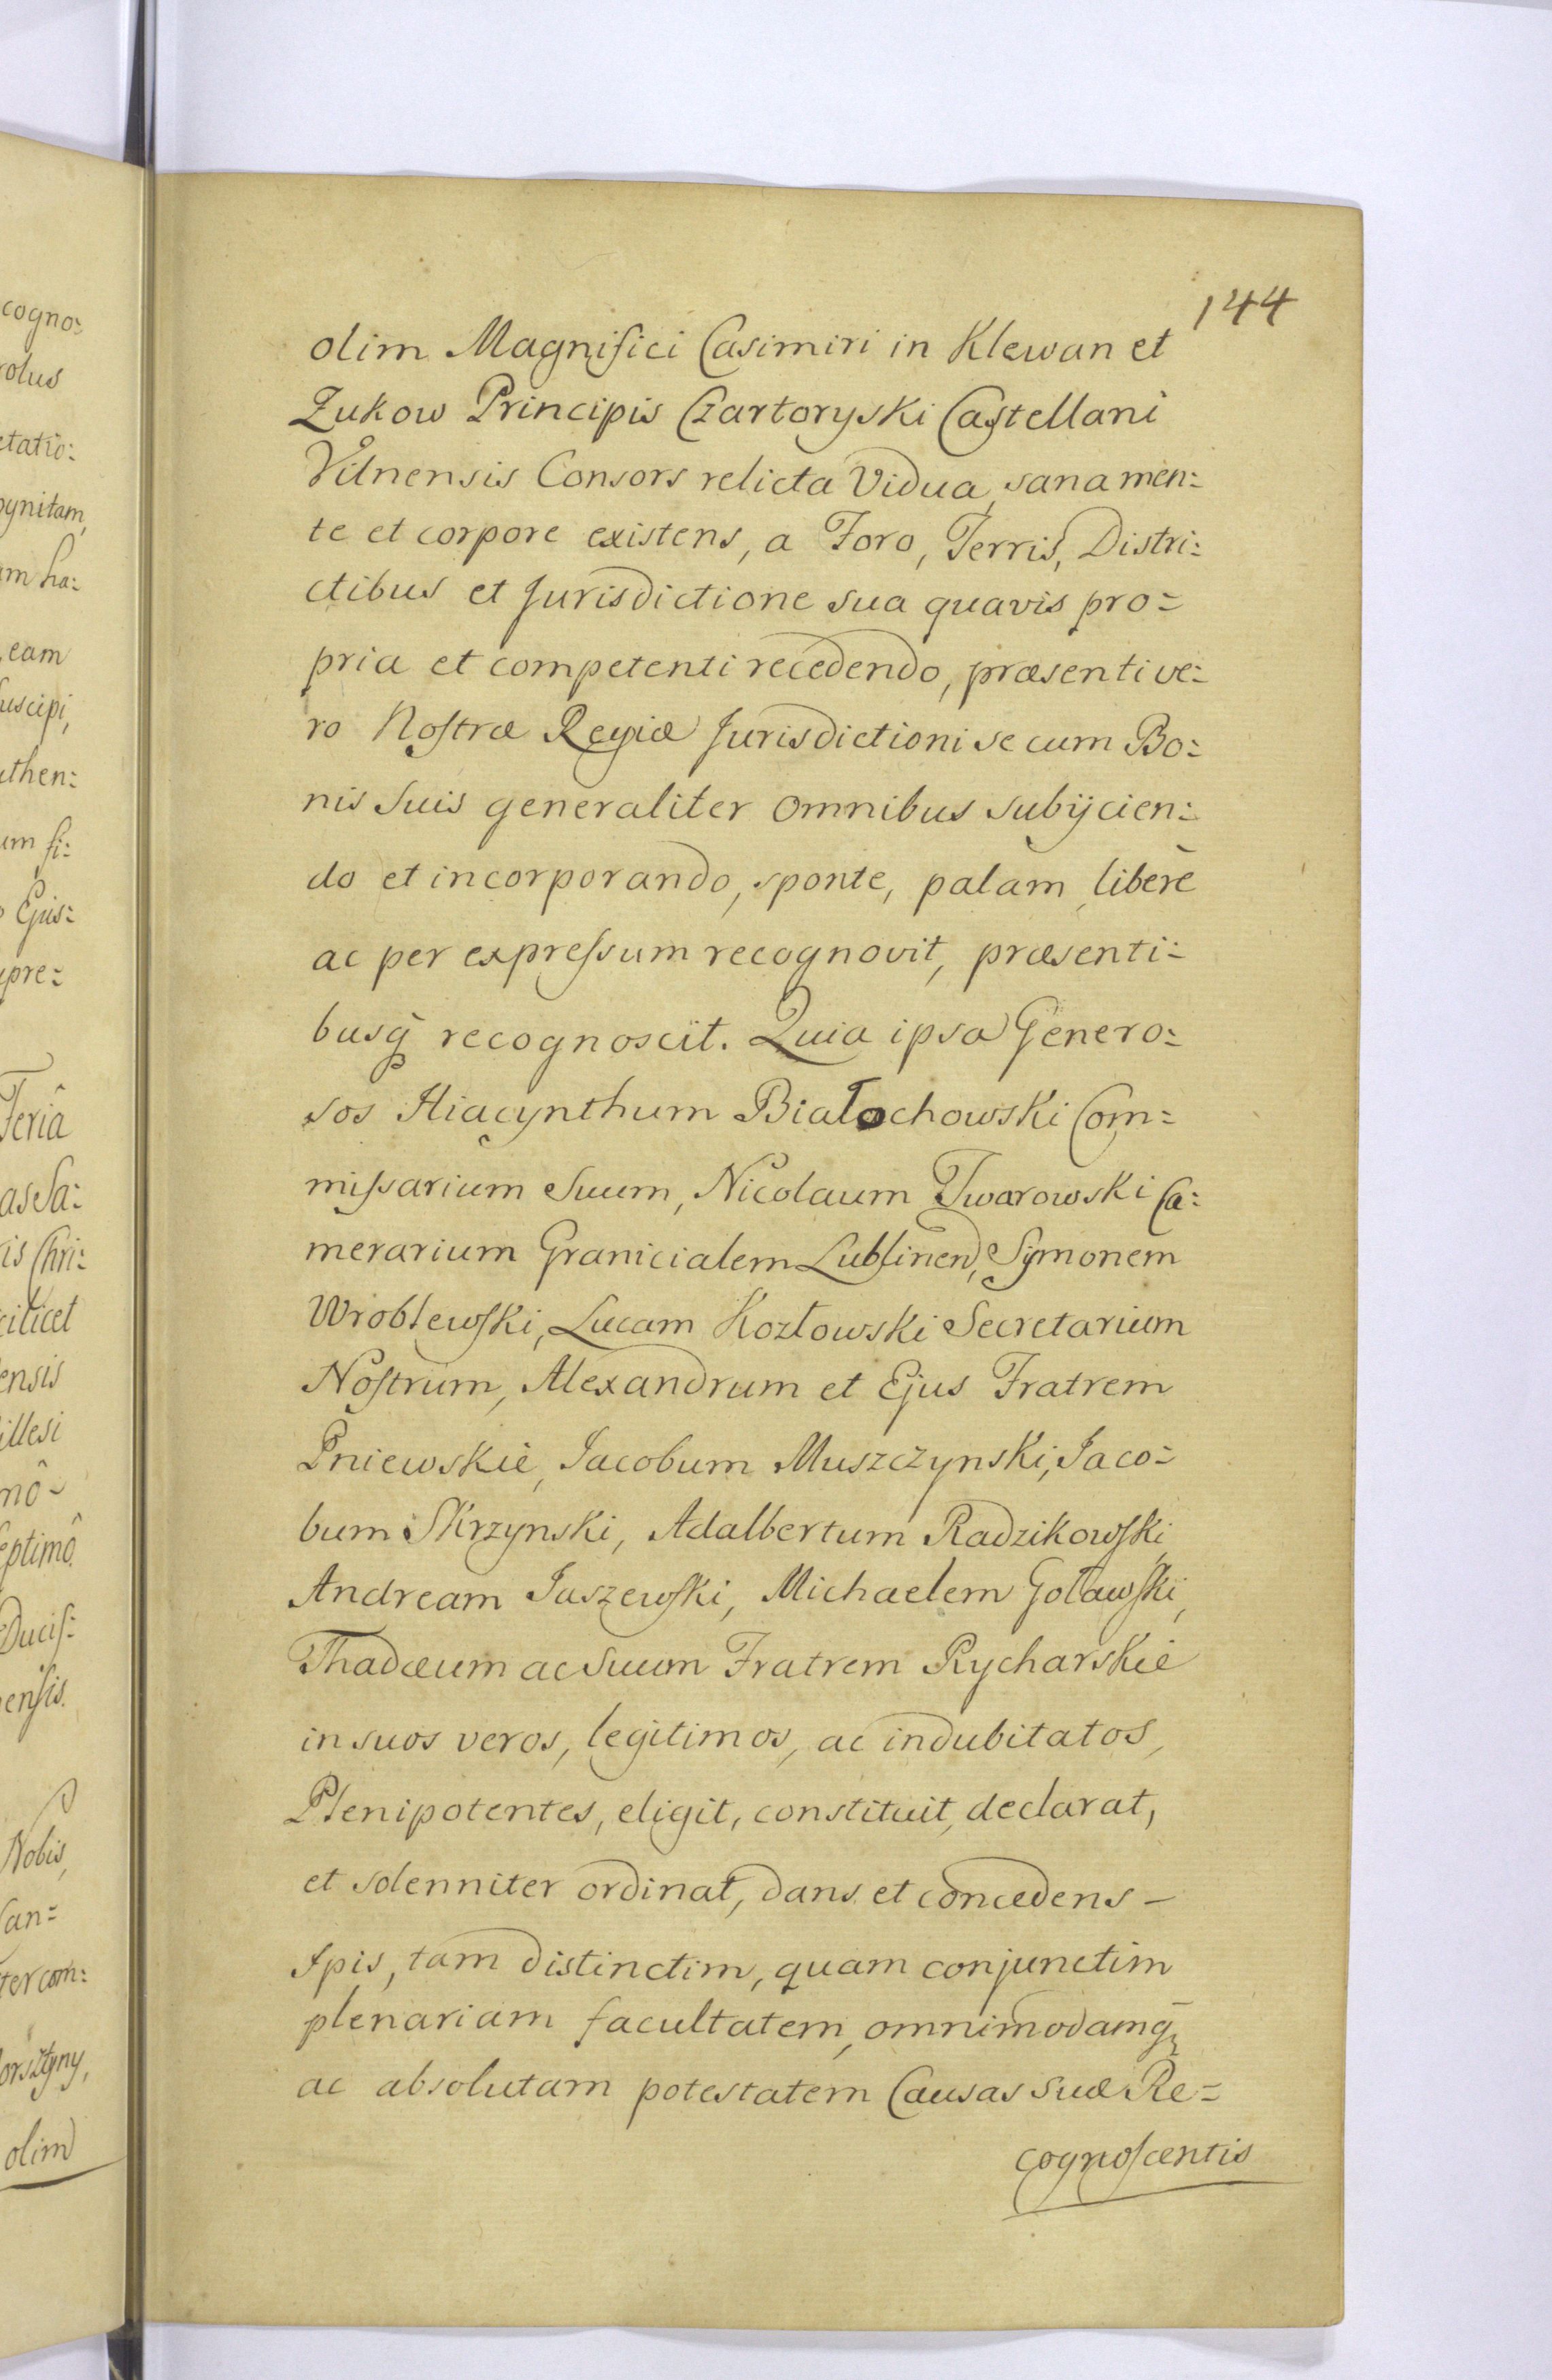 144
olim Magnifici Casimiri in Klewan et
Zukow Principis Czartoryski Castellani
Vilnensis Consors relicta Vidua, sana men:
te et corpore existens, a Foro, Terris, Distri:
ctibus et Jurisdictione sua quavis pro=
pria et competenti recedendo, præsenti ve:
ro Nostræ Regiæ Jurisdictioni se cum Bo:
nis suis generaliter omnibus subijcien:
do et incorporando, sponte, palam, liberè
ac per expressum recognovit, præsenti=
busq recognoscit. Quia ipsa Genero:
sos Hiacynthum Białochowski Com=
missarium suum, Nicolaum Twarowski Ca:
merarium Granicialem Lublinen, Symonem
Wroblewski, Lucam Kozłowski Secretarium
Nostrum, Alexandrum et Ejus Fratrem
Pniewskie, Jacobum Muszczynski, Jaco=
bum Skrzynski, Adalbertum Radzikowski,
Andream Jaszewski, Michaelem Goławski,
Thadæum ac suum Fratrem Rycharskie
in suos veros, legitimos, ac indubitatos,
Plenipotentes, eligit, constituit, declarat,
et solenniter ordinat, dans et concedens –
Ipis, tam distinctim, quam conjunctim
plenariam facultatem, omnimodamq
ac absolutam potestatem Causas suæ Re=
cognoscentis
cogno:
rolus
etatio:
ognitam,
am ha:
eam
suscipi,
uthen:
um fi:
Ejus:
pre:
Feriâ
as Sa:
is Chri:
cilicet
ensis
illesi
mô
septimô
Ducis:
ensis.
Nobis,
San=
ter com:
orsztyny,
olim